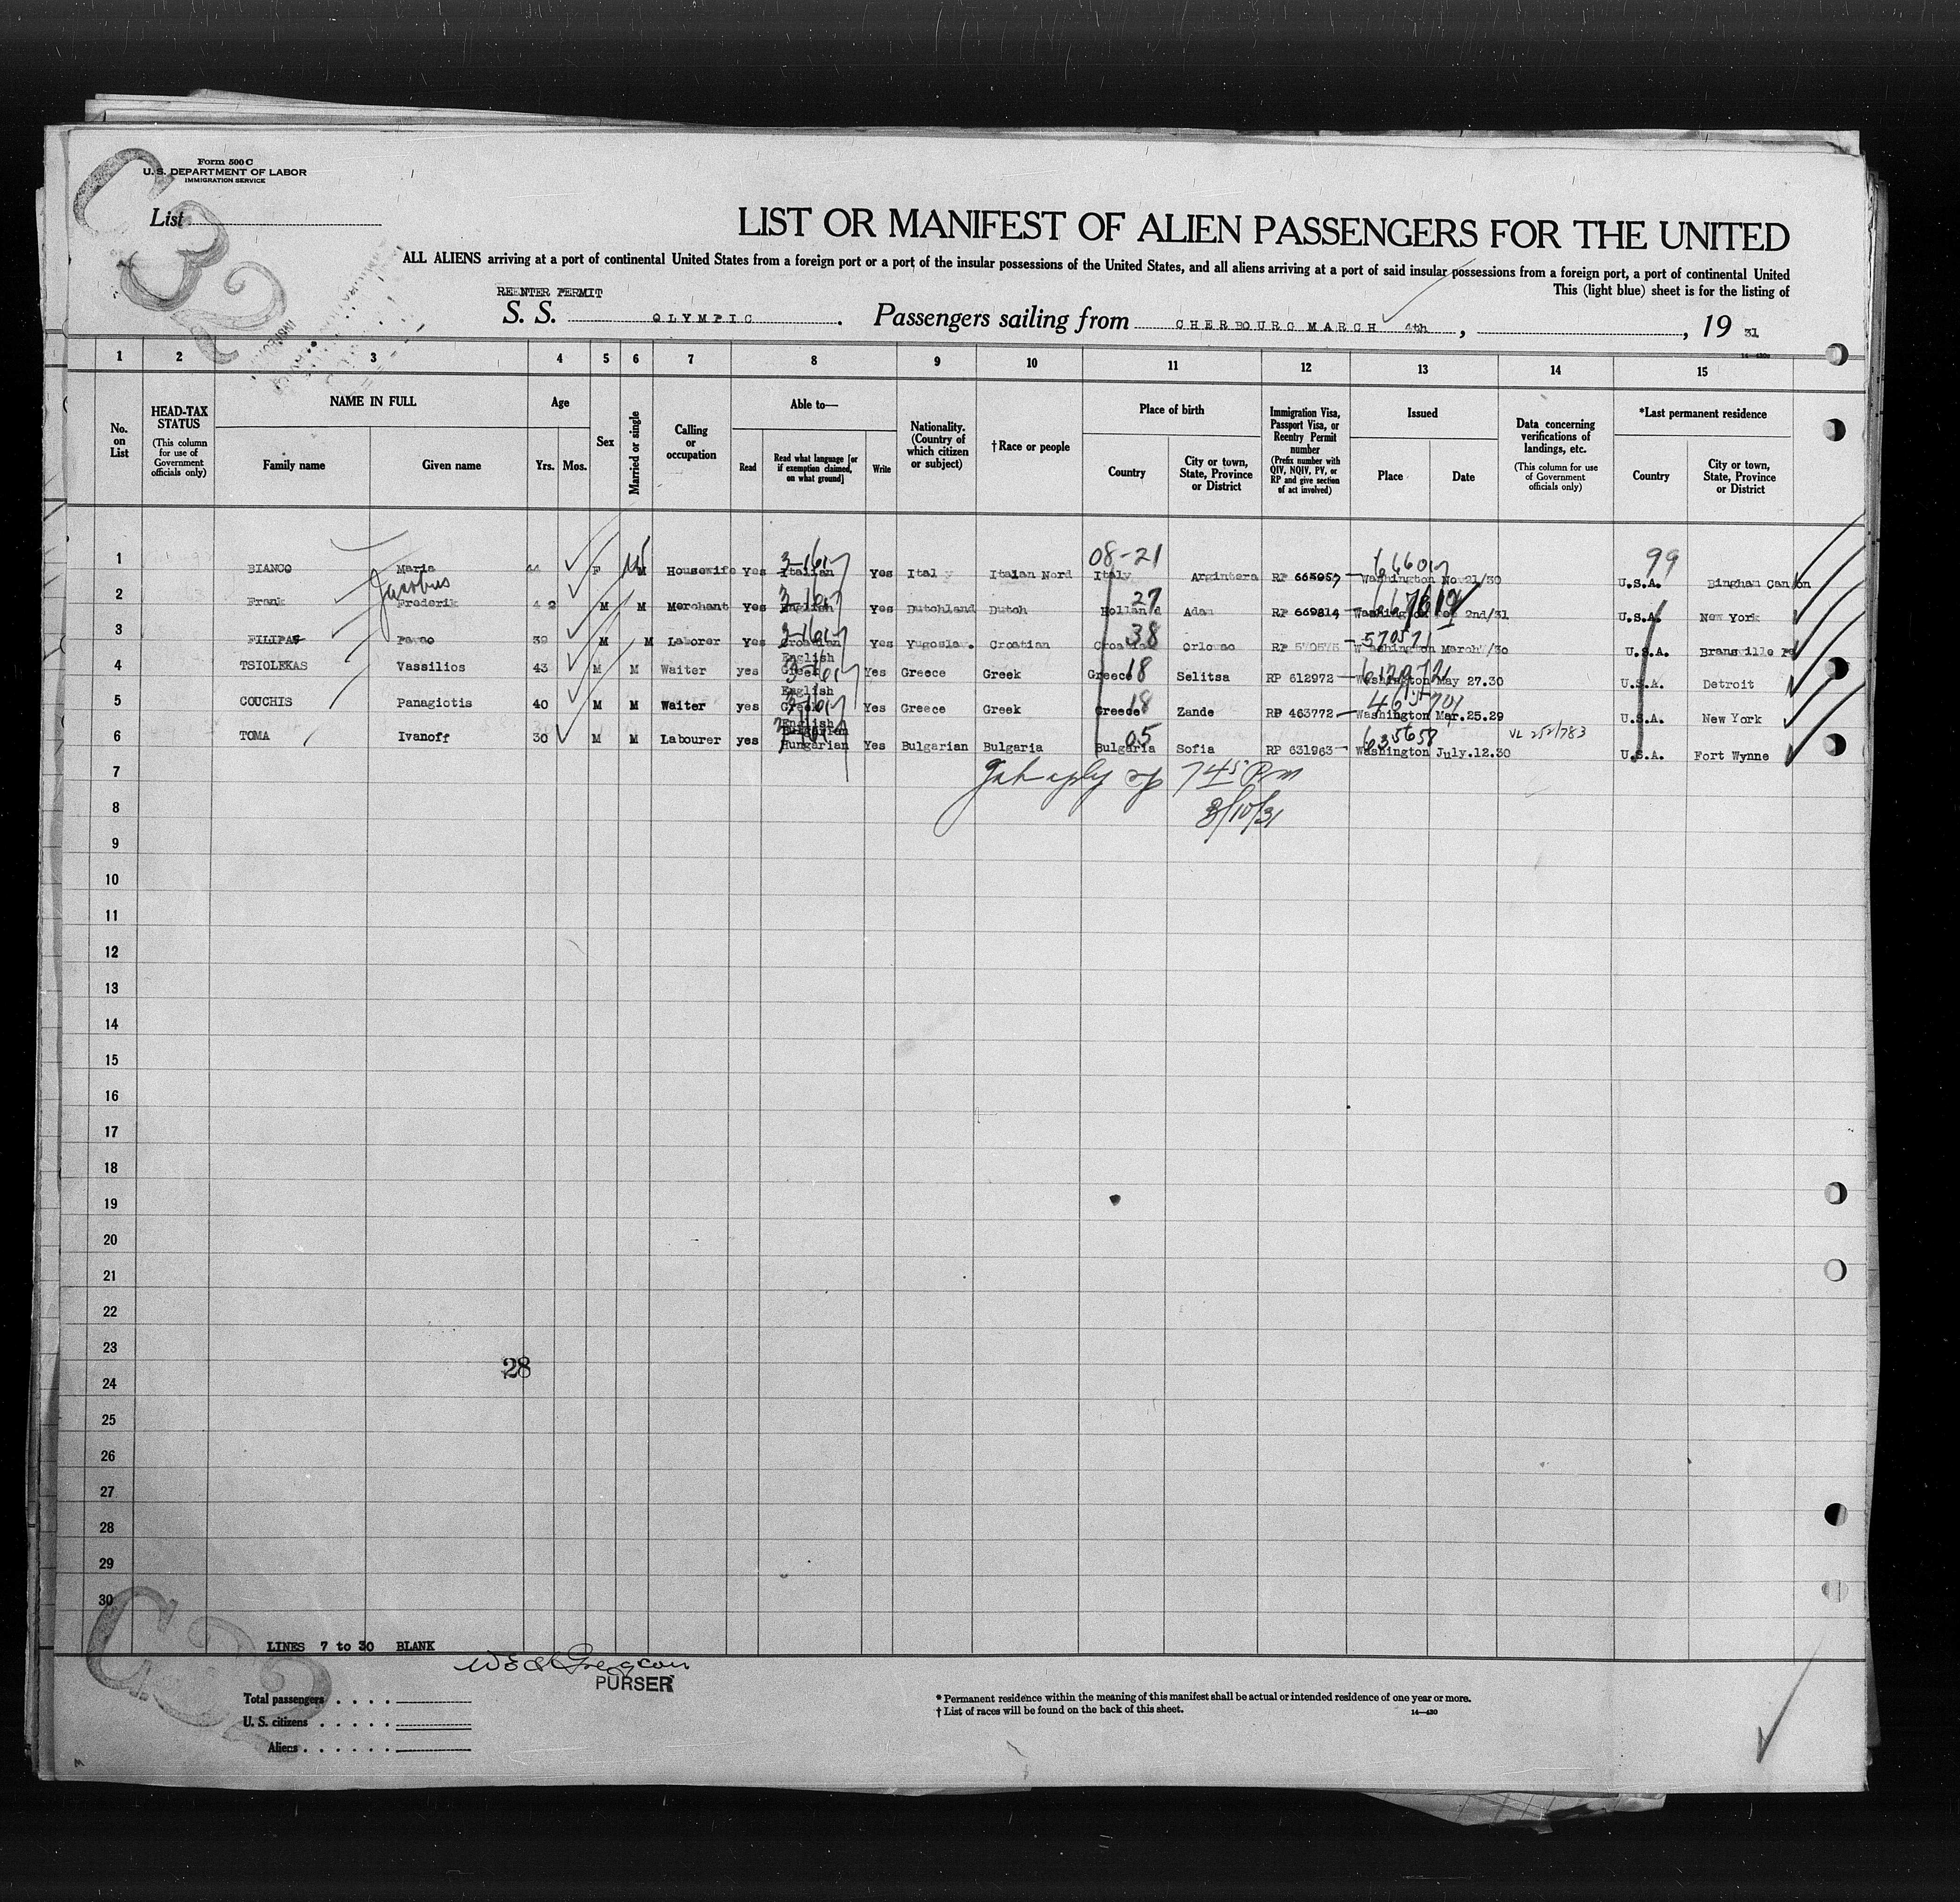 Form 500 C
U. S. DEPARTMENT OF LABOR
IMMIGRATION SERVICE
List
LIST OR MANIFEST OF ALIEN PASSENGERS FOR THE UNITED
ALL ALIENS arriving at a port of continental United States from a foreign port or a port of the insular possessions of the United States, and all aliens arriving at a port of said insular possessions from a foreign port, a port of continental United
This (light blue) sheet is for the listing of
REENTER PERMIT
S. S. OLYMPIC. Passengers sailing from CHERBOURG MARCH 4th, , 19 31
1 2 3 4 5 6 7 8 9 10 11 12 13 14 15
No. on List
HEAD-TAX STATUS
(This column for use of Government officials only)
NAME IN FULL
Family name Given name
Age
Yrs. Mos.
Sex
Married or single
Calling or occupation
Able to—
Read
Read what language [or if exemption claimed, on what ground]
Write
Nationality. (Country of which citizen or subject)
† Race or people
Place of birth
Country
City or town, State, Province or District
Immigration Visa, Passport Visa, or Reentry Permit number
(Prefix number with QIV, NQIV, PV, or RP and give section of act involved)
Issued
Place Date
Data concerning verifications of landings, etc.
(This column for use of Government officials only)
*Last permanent residence
Country
City or town, State, Province or District
08-21 99
1 BIANCO Maria 44 F M Housewife Yes Italian Yes Italy Italan Nord Italy Argintera RP 665957 Washington Nov21/30 U.S.A. Bingham Canyon
Jacobus
2 Frank Frederik 42 M M Merchant Yes English Yes Dutchland Dutch Holland 27 RP 669814 Washington 2nd/31 U.S.A. New York
3 FILIPAS 39 M M Laborer Yes Croatian Yes Yugoslav. Croatian 38 570571 Washington U.S.A.
4 TSIOLEKAS Vassilios 43 M M Waiter yes English Greek Yes Greece Greek Greece 18 Selitsa RP 612972 Washington May 27.30 U.S.A. Detroit
5 COUCHIS Panagiotis 40 M M Waiter yes English Greek Yes Greece Greek Greece 18 Zande RP 463772 Washington Mar.25.29 U.S.A. New York
6 TOMA Ivanoff 30 M M Labourer yes English Bulgarian Hungarian Yes Bulgarian Bulgaria Bulgaria 05 Sofia RP 631963 635658 Washington July.12.30 VL 252/783 U.S.A. Fort Wynne
7 745 Pm
8 3/10/31
9
10
11
12
13
14
15
16
17
18
19
20
21
22
23
28
24
25
26
27
28
29
30
LINES 7 to 30 BLANK
PURSER
Total passengers
U. S. citizens
Aliens
* Permanent residence within the meaning of this manifest shall be actual or intended residence of one year or more.
† List of races will be found on the back of this sheet.
14—430